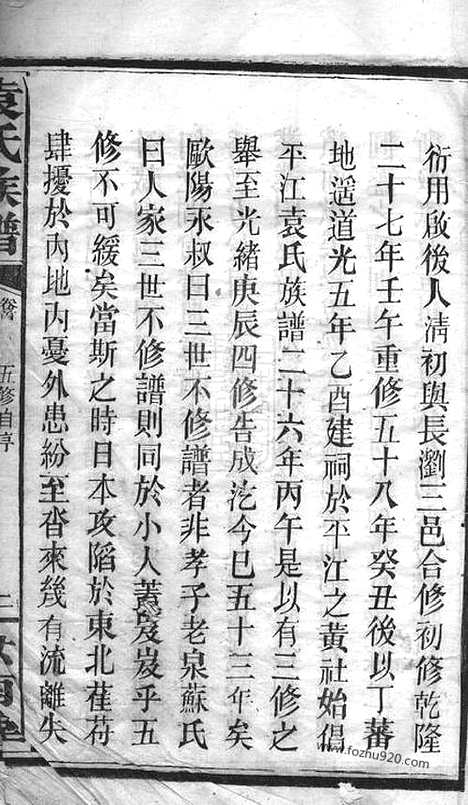 衍用啟後人淸初與長瀏二邑合修初修乾隆
二十七年壬午重修五十八年癸丑後以丁蕃
地遥道光五年乙酉建祠於平江之黃社始倡
平江袁氏族譜二十六年丙午是以有三修之
舉至光緒庚辰四修告成迄今巳五十三年矣
歐陽永叔曰三世不修譜者非孝子老泉蘇氏
曰人家三世不修譜則同於小人蓋岌岌乎五
修不可緩矣當斯之時日本攻陷於東北萑苻
肆擾於內地內憂外患紛至沓來幾有流離失
袁氏族譜
卷首 五修自序
二
www.fozhu920.com